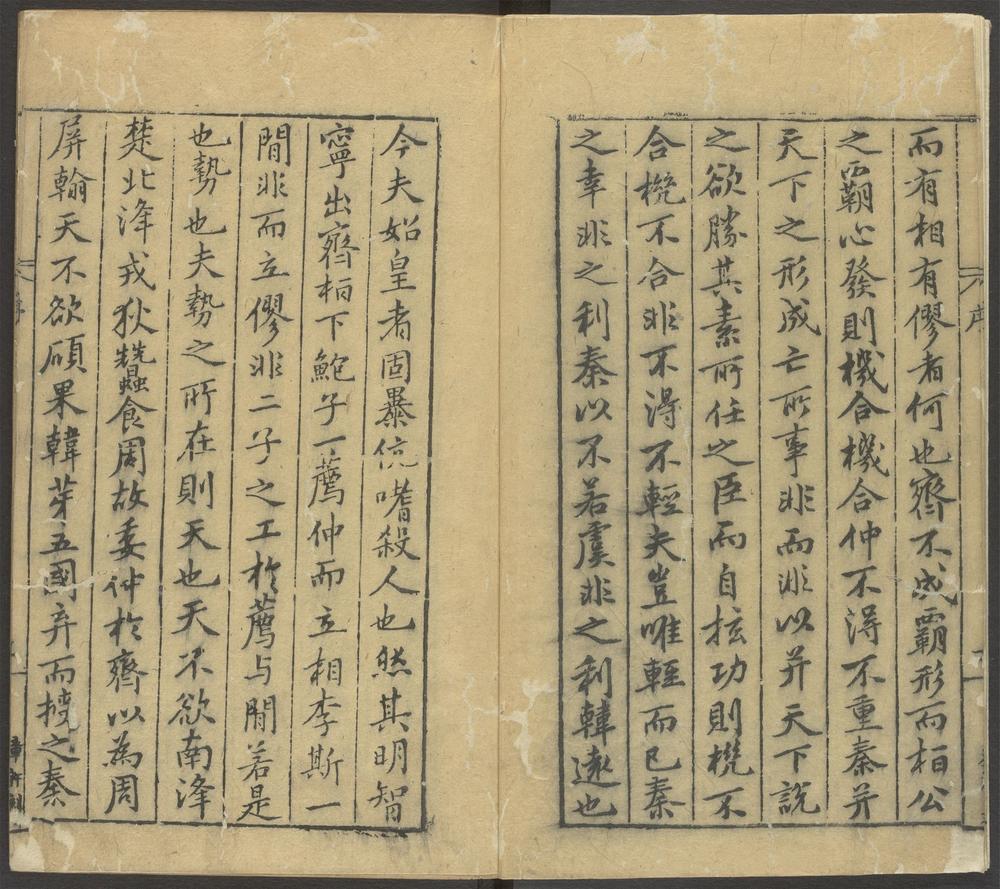 而有相有僇者何也齊不成霸形而栢公
之霸心發則機合機合仲不得不重秦并
天下之形成亡所事非而非以并天下說
之欲勝其素所任之臣而自抎功則機不
合機不合非不得不輕夫豈唯輕而已秦
之幸非之利秦以不若虞非之利韓遠也
今夫始皇者固暴伉嗜殺人也然其明智
寧出齊栢下鮑子一薦仲而立相李斯一
間非而立僇非二子之工於薦与間若是
也勢也夫勢之所在則天也天不欲南浲
楚北浲戎狄蠶食周故委仲於齊以為周
屏翰天不欲碩果韓芽五國弃而授之秦